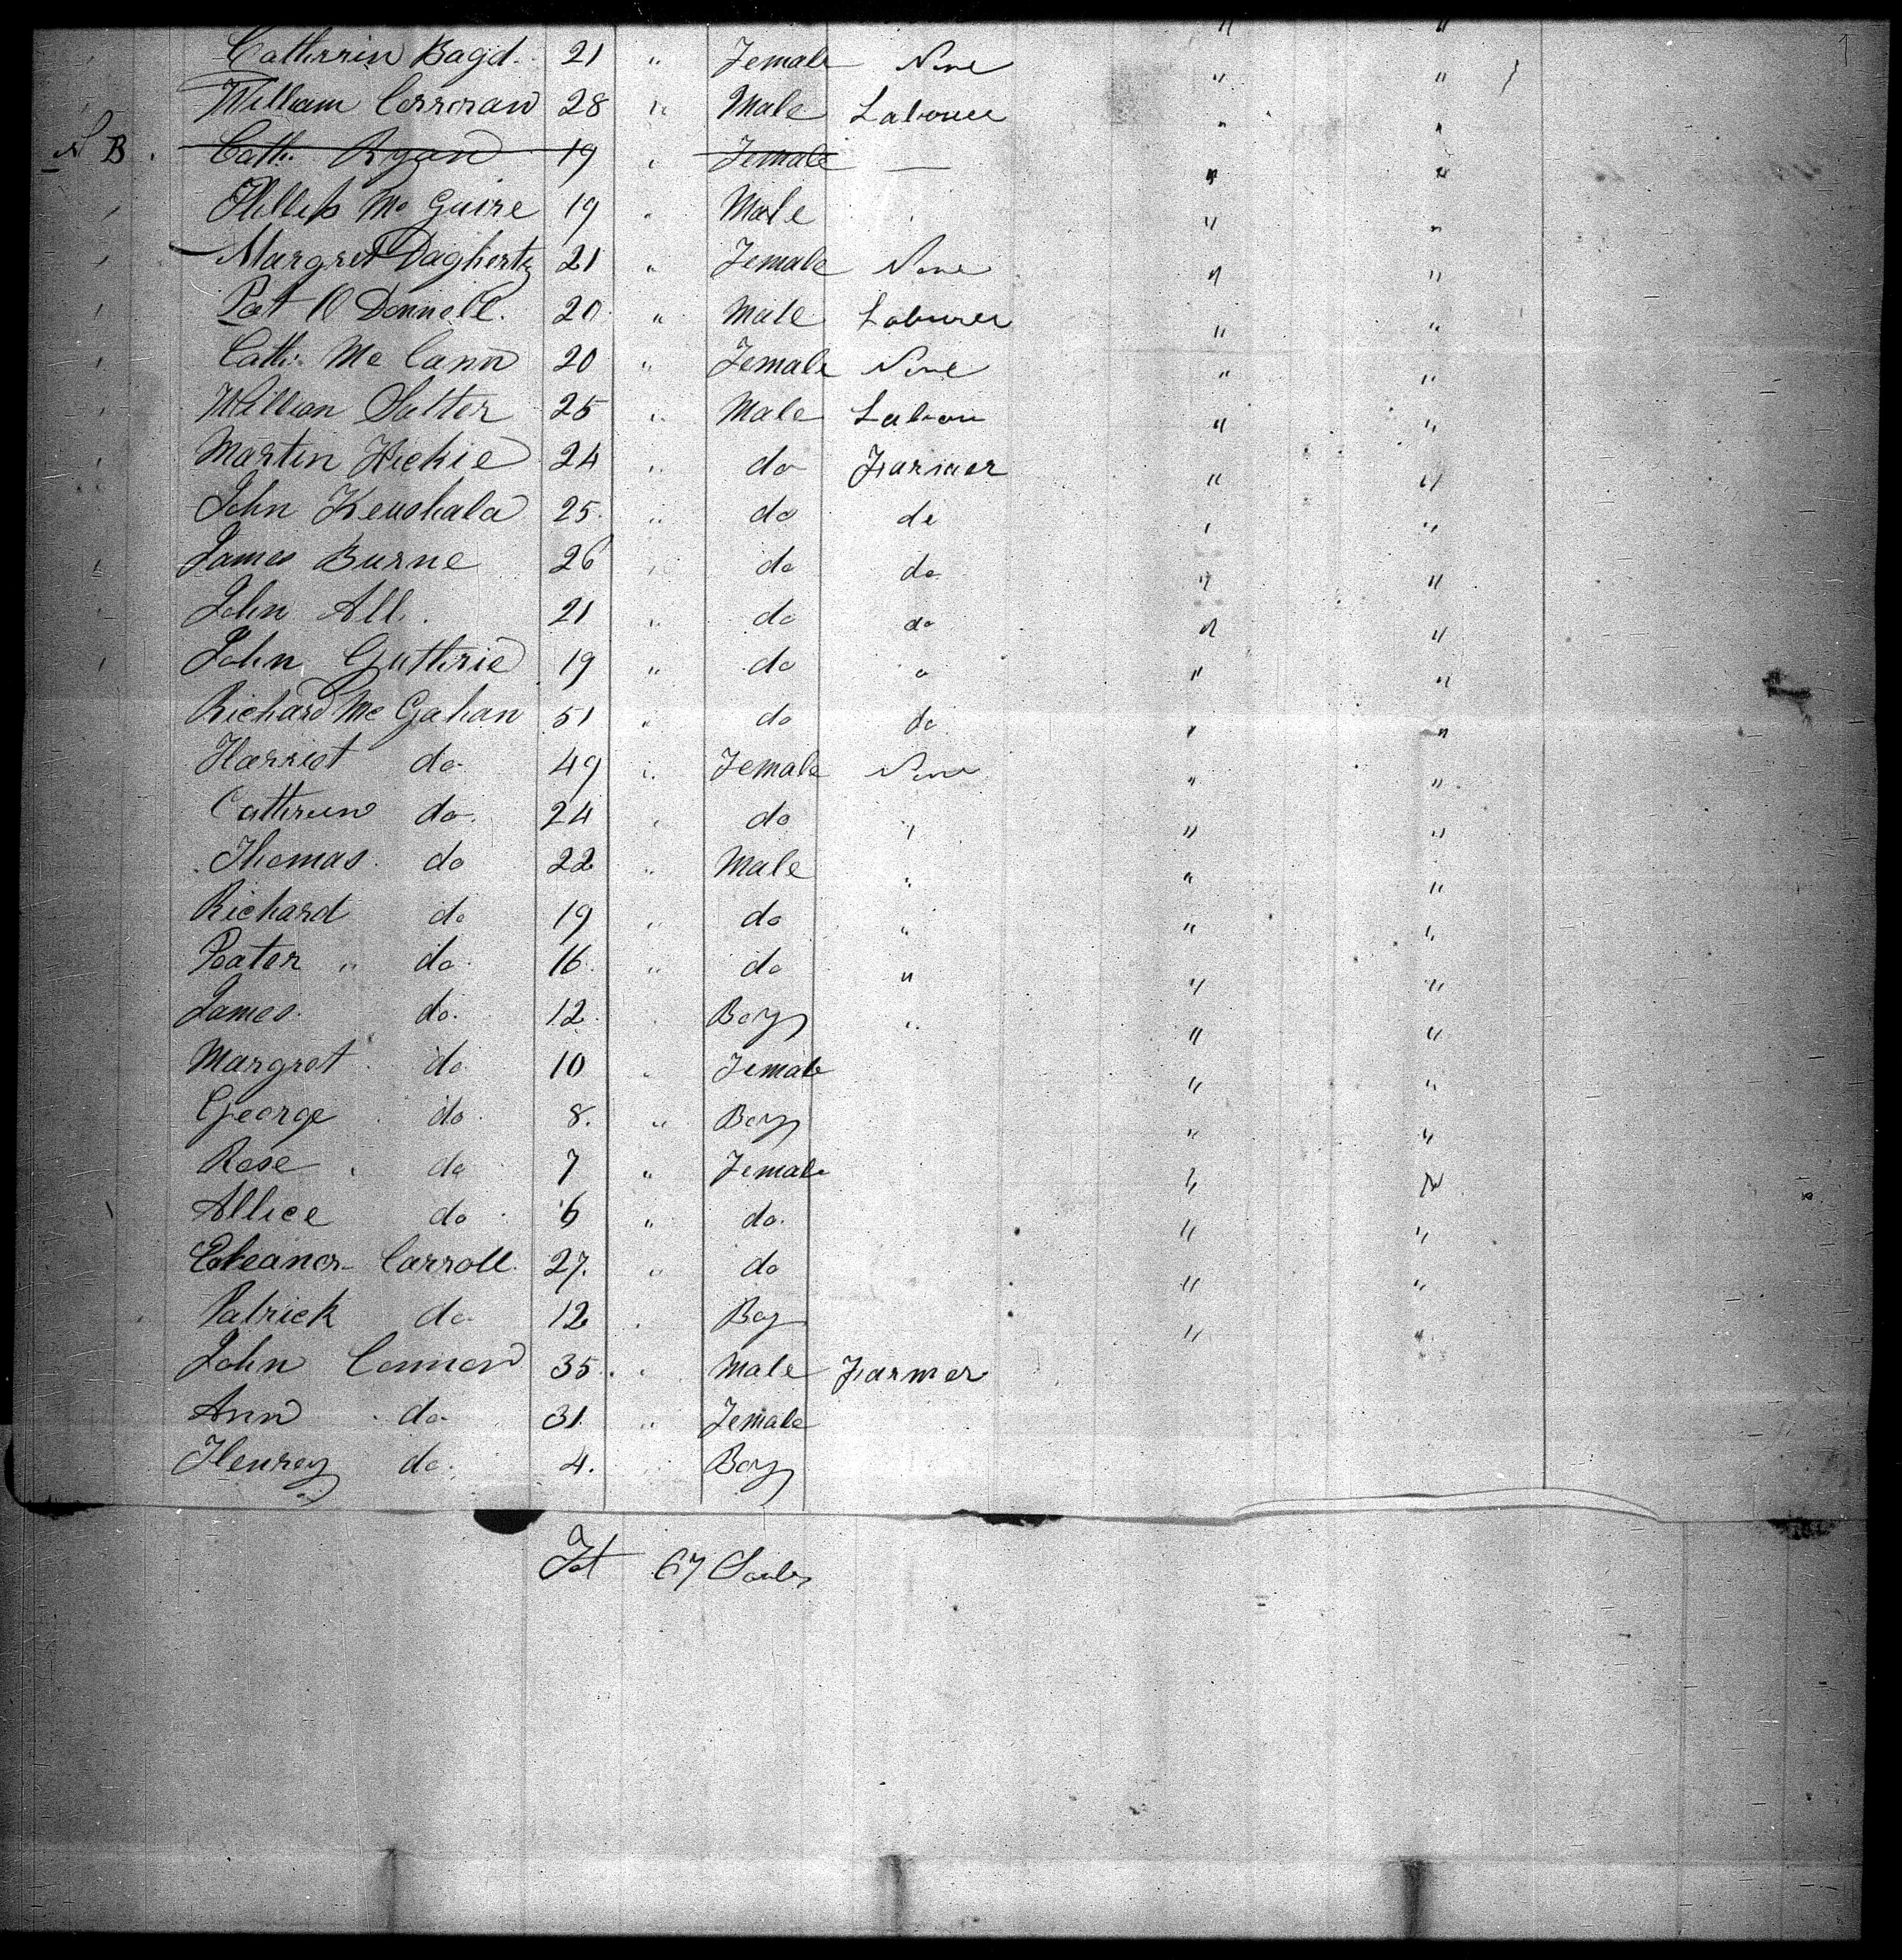 Catherin Bagd. 21 " Female None " "
William Corroran 28 " Male Labouer " "
N B. Cath: Ryan 19 " Female — " "
Phillip Mc Guire 19 " Male " "
Margret Dagherty 21 " Female None " "
Pat O Donnell. 20 " Male Labourer " "
Cath: Mc Cann 20 " Female None " "
William Salter 25 " Male Labou " "
Martin Hickie 24 " do Farmer " "
John 25 " do do " "
James Burne 26 " do do " "
John All. 21 " do do " "
John Guthrie 19 " do o " "
Richard Mc Gahan 51 " do do " "
Harriot do 49 " Female None " "
Cathrun do. 24 " do " " "
Thomas. do 22 " Male " " "
Richard do 19 " do " " "
Peater " do 16 " do " " "
James. do. 12 Boy " " "
Margret do 10 " Female " "
George do 8. " Boy " "
Rose do 7 " Female " "
Allice do 6 " do. " "
Eleanor Carroll. 27. " do " "
Patrick do 12 " Boy " "
John Connor 35. " Male Farmer
Ann do 31. " Female
Henrey do. 4. Boy
Tot 67 Souls